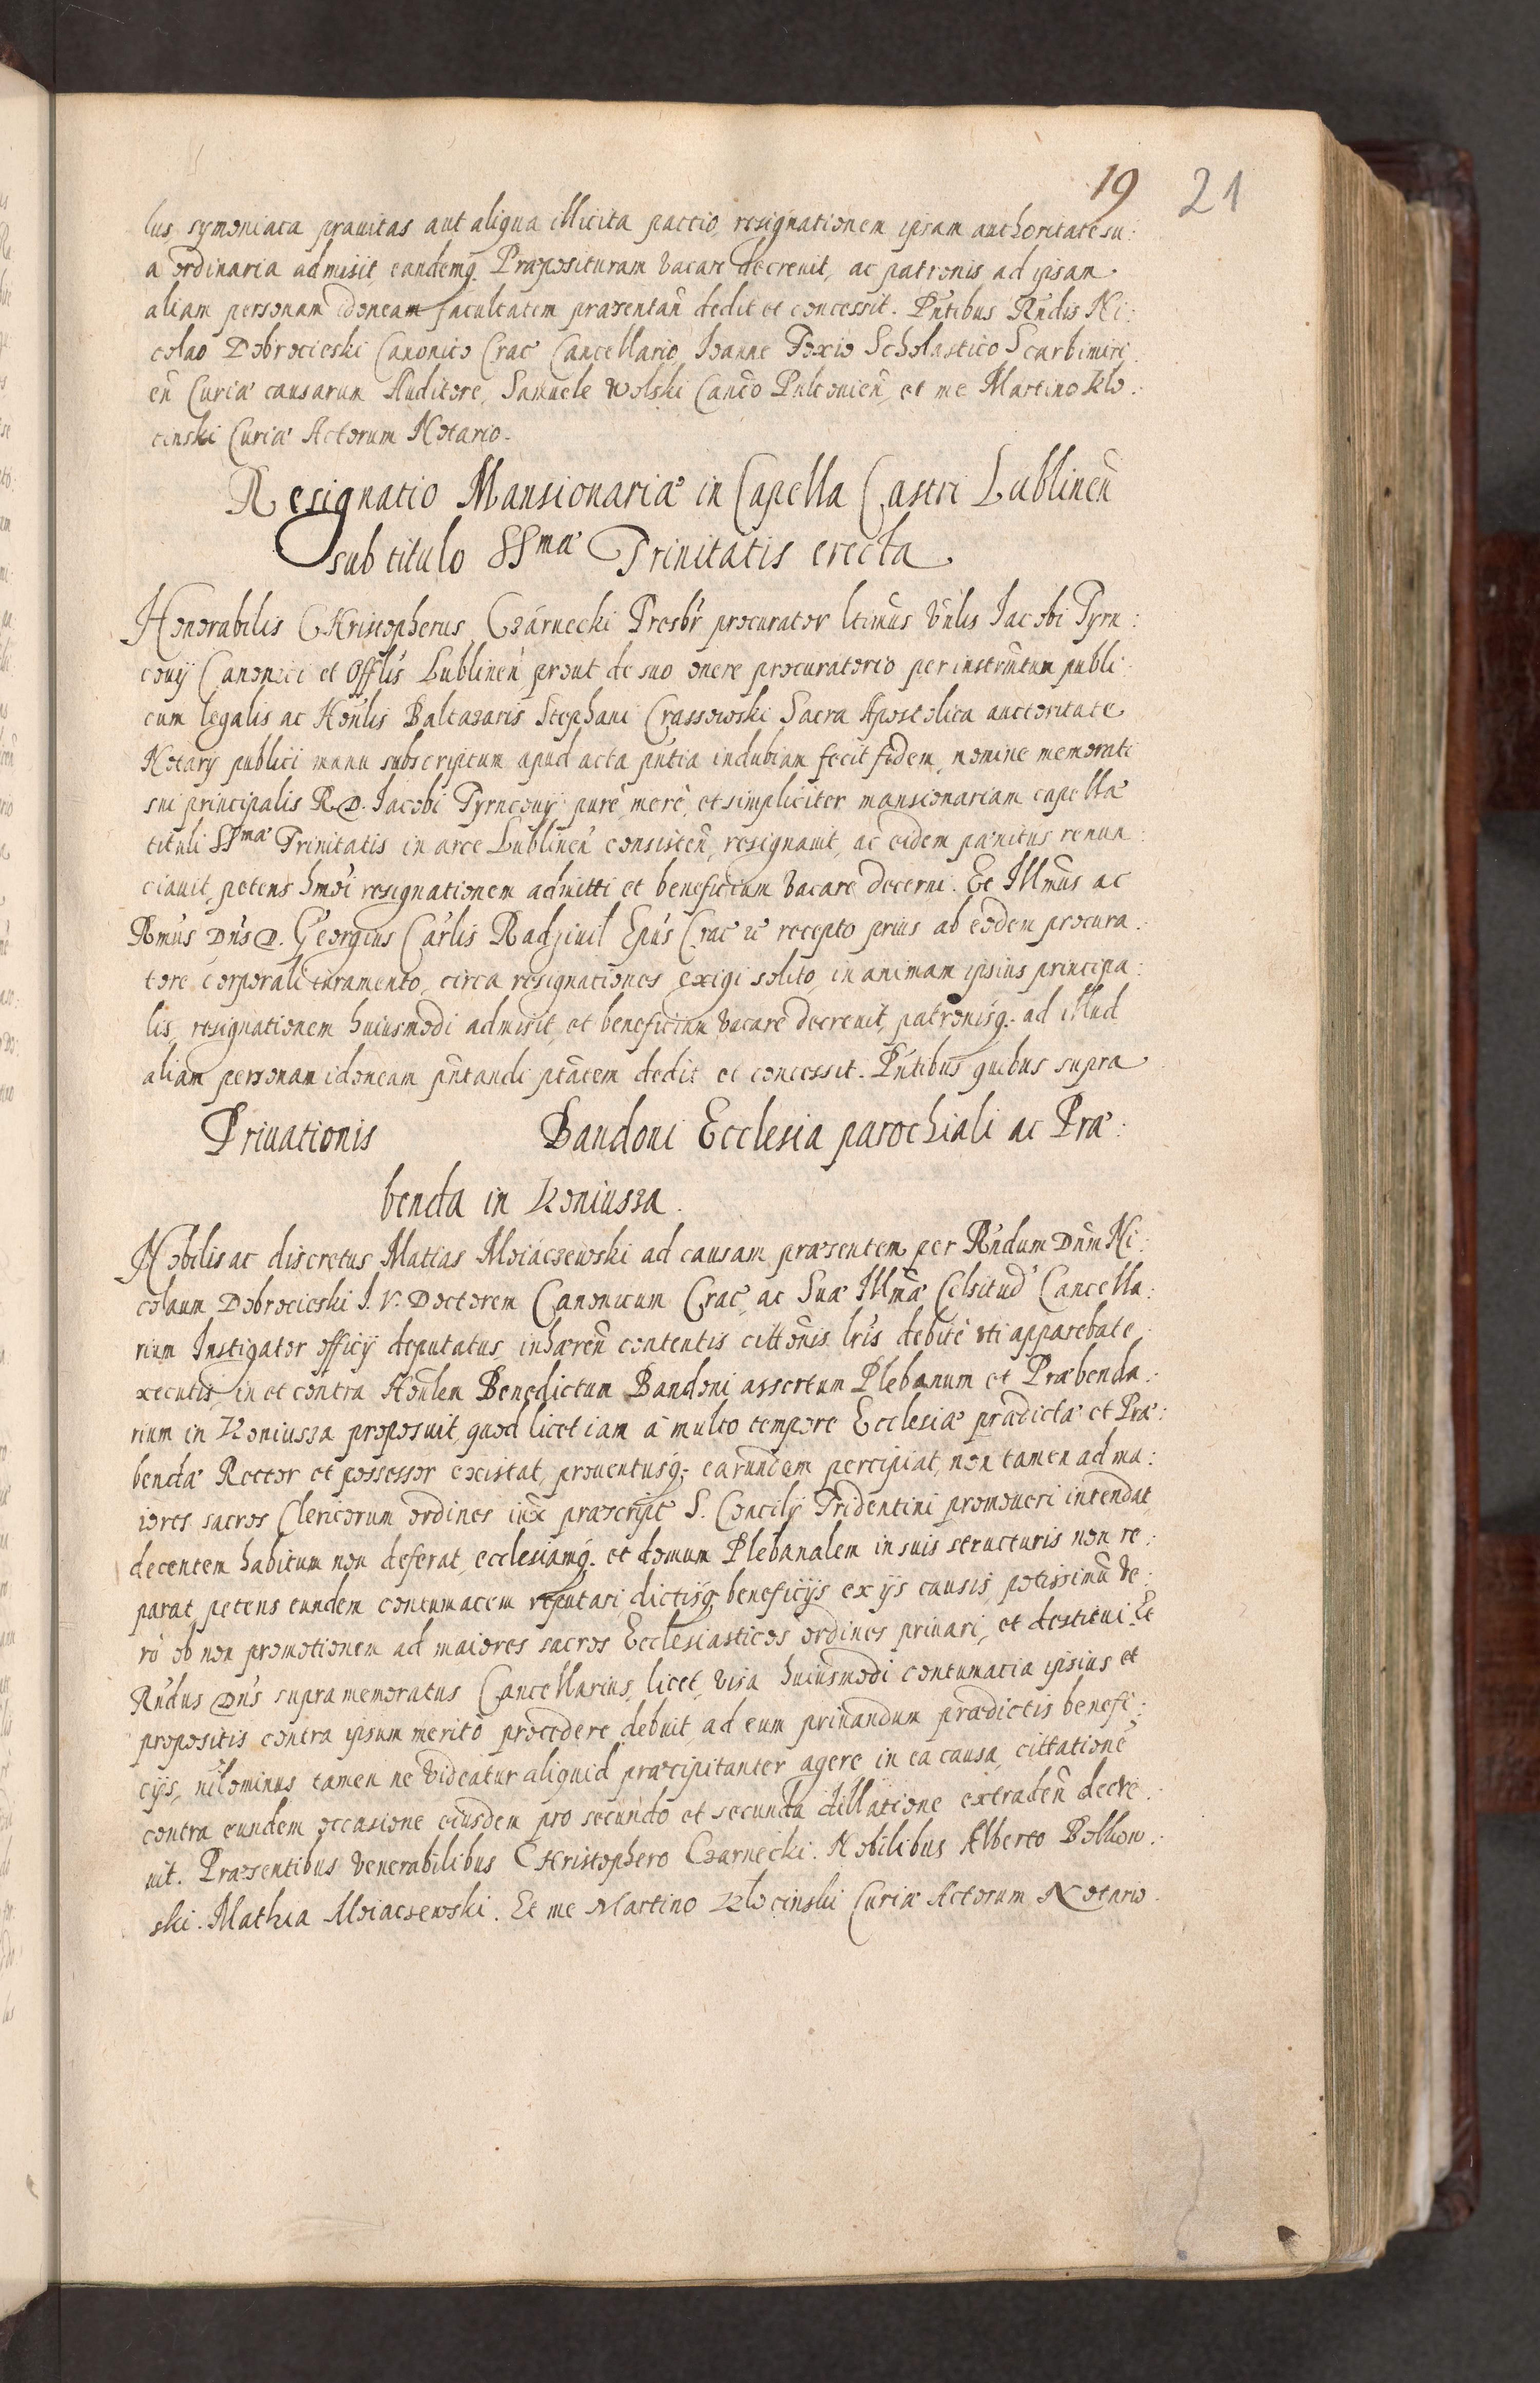 19 21
lus symoniaca prauitas aut aliqua illicita pactio, resignationem ipsam authoritate su:
a ordinaria admisit, eandemq. Præposituram vacare decreuit, ac patronis ad ipsam
aliam personam idoneam facultatem præsentañ dedit et concessit. Pñtibus Rñdis Ni:
colao Dobrocieski Canonico Crac̃ Cancellario, Ioanne Foxio Scholastico Scarbimiri:
eñ Curiæ causarum Auditore, Samuele Wolski Canco Pultouieñ, et me Martino Klo:
cinski Curiæ Actorum Notario.
Resignatio Mansionariæ in Capella Castri Lublineñ
sub titulo SSmæ Trinitatis erecta
Honorabilis CHristopherus Czarnecki Presbr̃ procurator ltimũs Vñlis Iacobi Tyrn:
couij Canonici et Offlis Lublineñ prout de suo onere procuratorio per instrũtum publi:
cum legalis ac Hoñlis Baltazaris Stephani Crassowski Sacra Apostolica auctoritate
Notarij publici manu subscriptum apud acta pñtia indubiam fecit fidem, nomine memorati
sui principalis R.D. Iacobi Tyrncouij purè, merè, et simpliciter mansionariam capellæ
tituli SSmæ Trinitatis in arce Lublineñ consisteñ, resignauit, ac eidem pænitus renun:
ciauit, petens hmõi resignationem admitti et beneficium vacare decerni. Et Illmũs ac
Rmũs Dñs D. Georgius Carlis Radziuil Epũs Crac̃ &c recepto prius ab eodem procura:
tore corporali iuramento, circa resignationes exigi solito, in animam ipsius principa:
lis, resignationem huiusmodi admisit, et beneficium vacare decreuit, patronisq. ad illud
aliam personam idoneam pñtandi ptãtem dedit et concessit. Pñtibus quibus supra
Priuationis Bandoni Ecclesia parochiali ac Præ:
benda in Koniussa.
Nobilis ac discretus Matias Moiaczewski ad causam præsentem per Rñdum Dñm Ni:
colaum Dobrocieski I. V. Doctorem Canonicum Crac̃, ac Suæ Illmæ Celsitud̃ Cancella:
rium Instigator officij deputatus, inhæreñ contentis cittõnis lrĩs debitè vti apparebat e:
xecutis, in et contra Hoñlem Benedictum Bandoni assertum Plebanum et Præbenda:
rium in Koniussa proposuit, quod licet iam à multo tempore Ecclesiæ prædictæ et Præ:
bendæ Rector et possessor existat, prouentusq. earundem percipiat, non tamen ad ma:
iores sacros Clericorum ordines iux̃ præscript̃ S. Concilij Tridentini promoueri intendat,
decentem habitum non deferat, ecclesiamq. et domum Plebanalem in suis structuris non re:
parat, petens eundem contumacem reputari, dictisq. beneficijs ex ijs causis, potissimũ ve:
rò ob non promotionem ad maiores sacros Ecclesiasticos ordines priuari, et destitui. Et
Rñdus Dñs supra memoratus Cancellarius, licet, visa huiusmodi contumatia ipsius et
propositis contra ipsum meritò procedere debuit, ad eum priuandum prædictis benefi:
cijs, nilominus tamen ne videatur aliquid præcipitanter agere in ea causa, cittationẽ
contra eundem occasione eiusdem pro secundo et secunda dillatione extradeñ decre:
uit. Præsentibus venerabilibus CHristophero Czarnecki. Nobilibus Alberto Polkow:
ski. Mathia Moiaczewski. Et me Martino Klocinski Curiæ Actorum Notario.